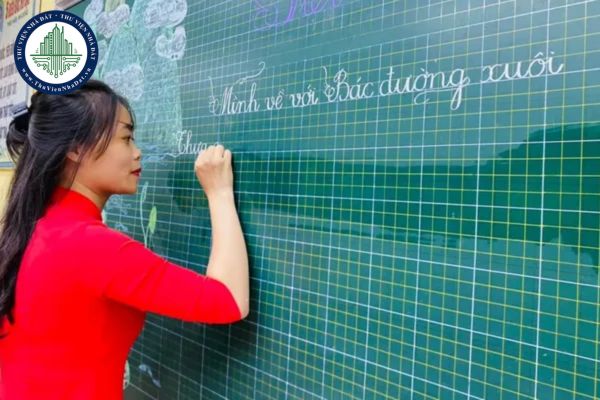 THƯ VIỆN NHÀ ĐẤT
www.ThuVienNhaDat.vn
Mình về với Bác đường xuôi
Thưa